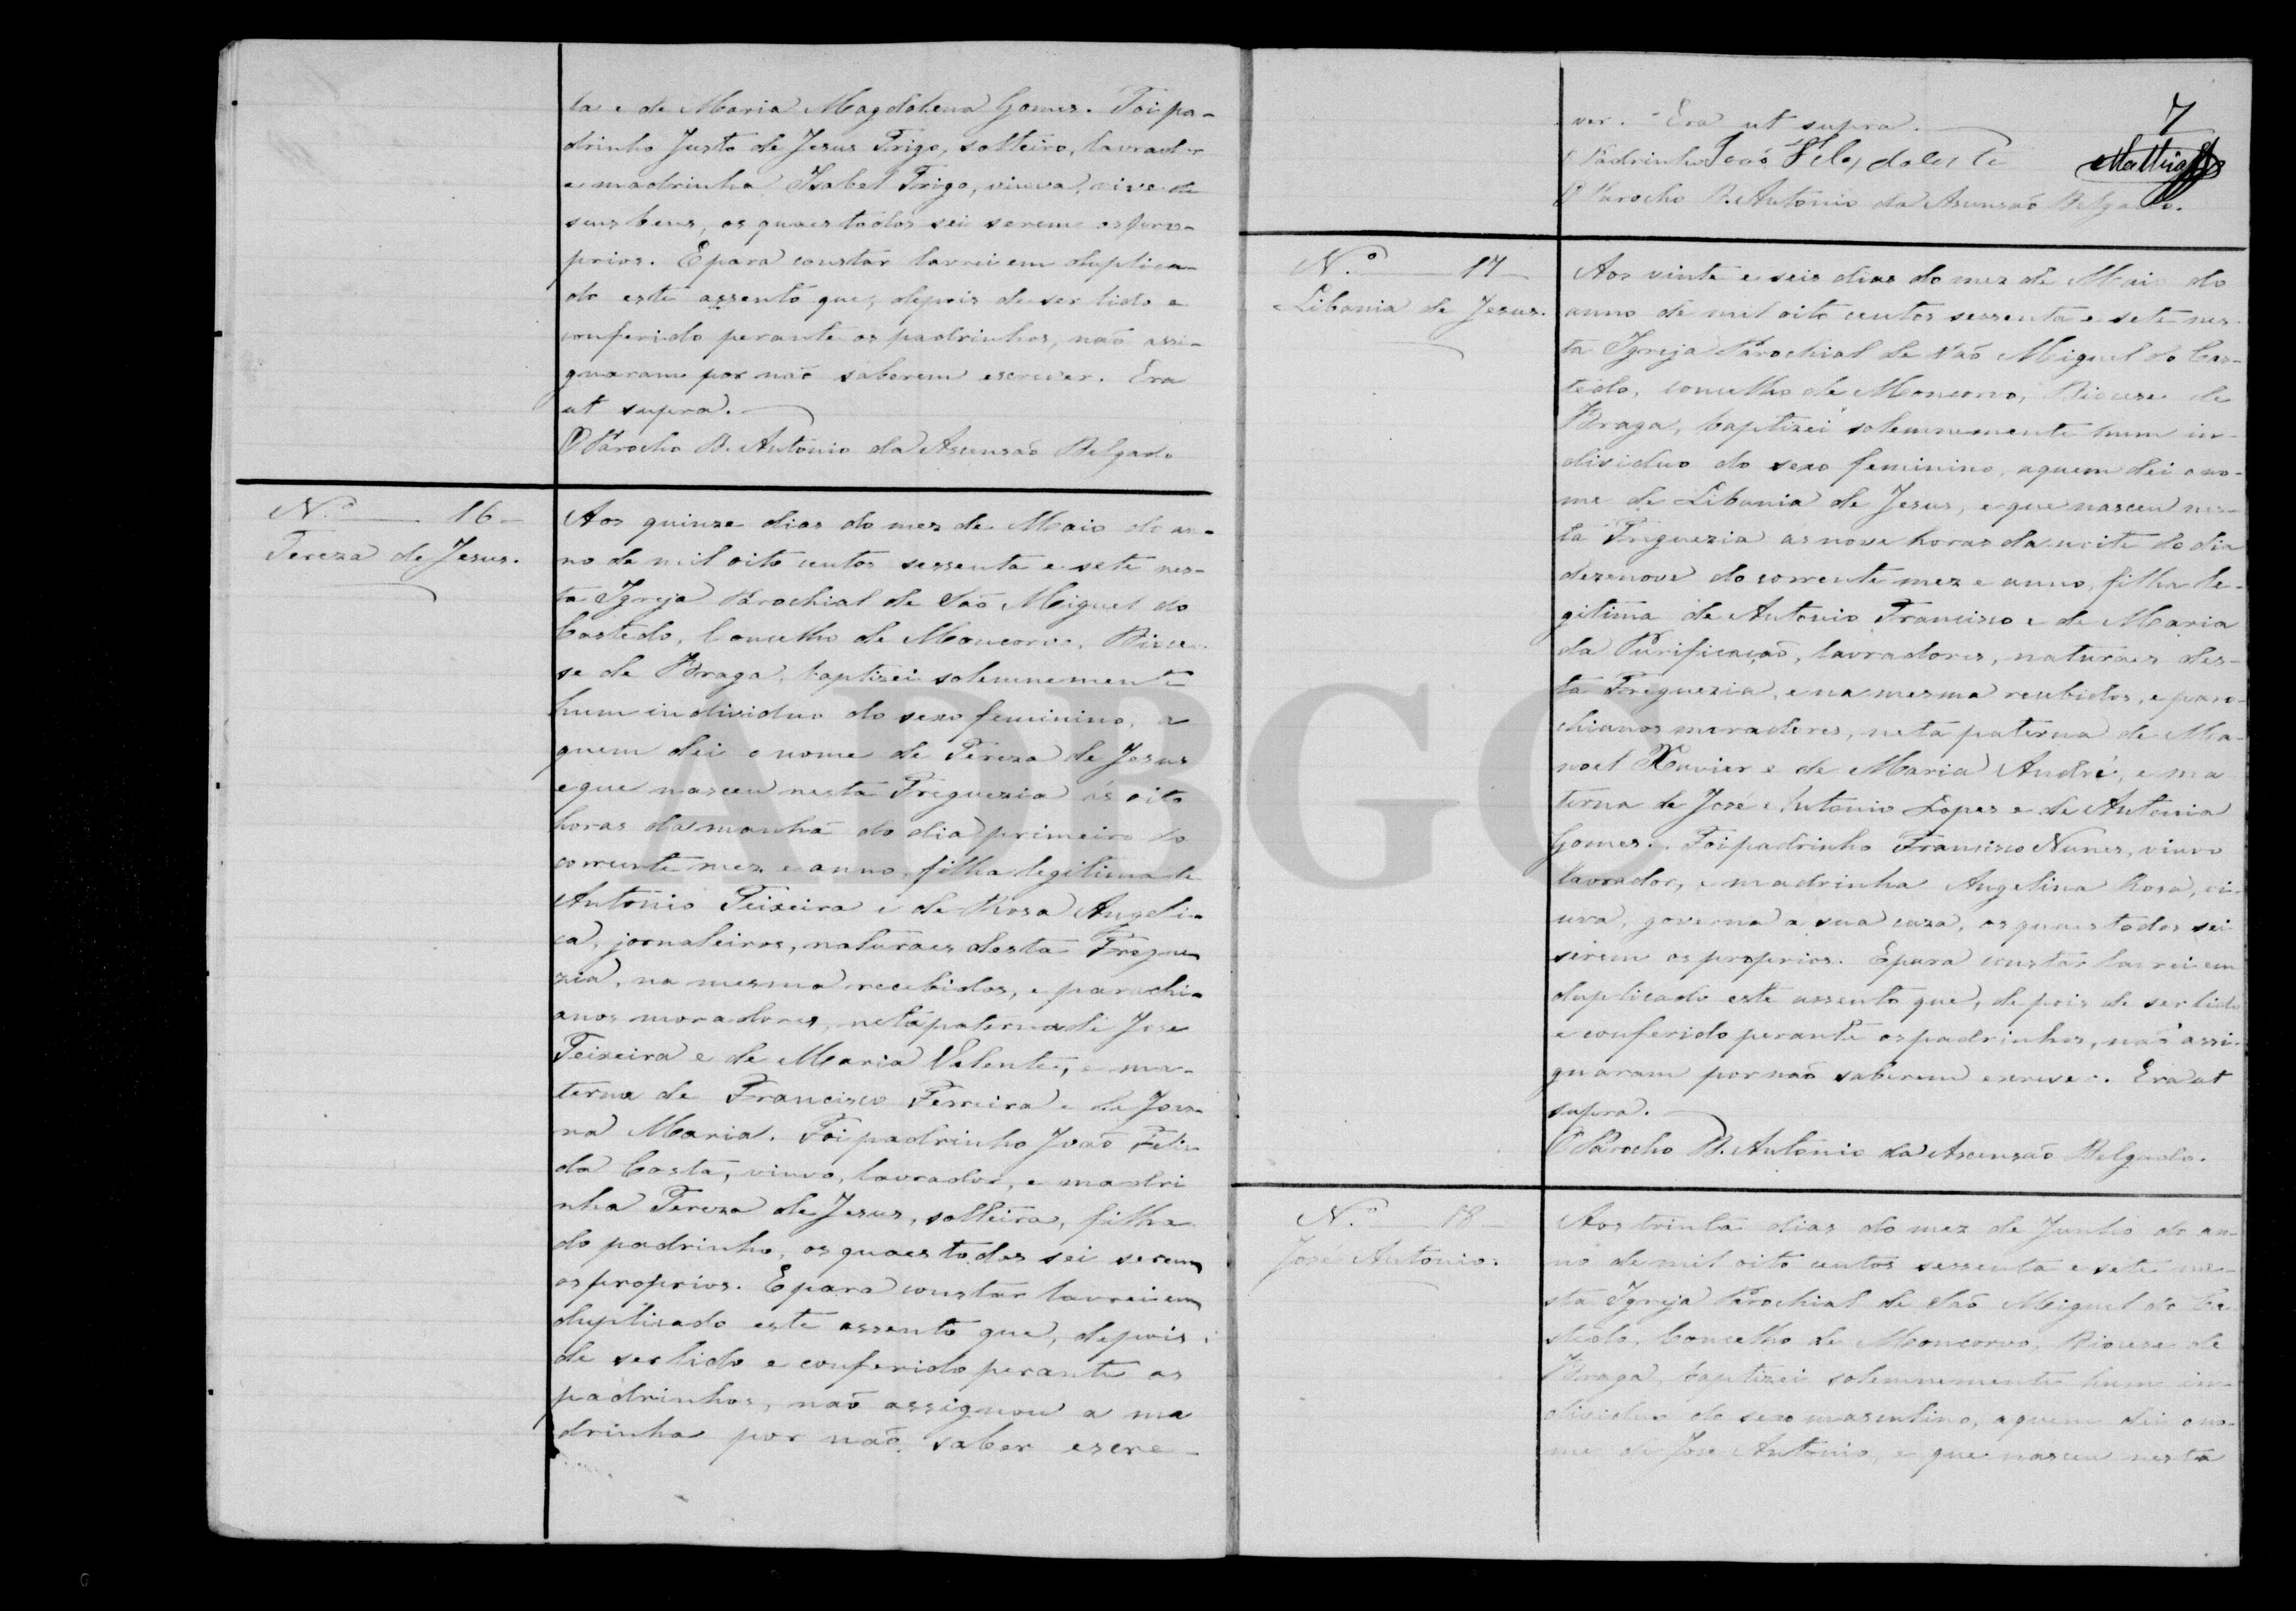 ta e de Maria Magdalena Gomes. Foi pa-
drinho Justo de Jesus Trigo, solteiro, lavrador
e madrinha Isabel Trigo, viuva, vive de
seus bens, os quaes todos sei serem os pro-
prios. E para constar lavrei em duplica-
do este assento que, depois de ser lido e
conferido perante os padrinhos, não assi-
gnaram por não saberem escrever. Era
ut supra.
O Parocho B. Antonio da Ascensão Delgado
N.º 16
Tereza de Jesus.
Aos quinze dias do mez de Maio do an-
no de mil oito centos sessenta e sete nes-
ta Igreja Parochial de São Miguel do
Castedo, Concelho de Moncorvo, Dioce-
se de Braga, baptizei solemnemente
hum individuo do sexo feminino, a
quem dei o nome de Tereza de Jesus
e que nasceu nesta Freguezia ás oito
horas da manhã do dia primeiro do
corrente mez e anno, filha legitima de
Antonio Teixeira e de Roza Angeli-
ca, jornaleiros, naturaes desta Fregue
zia, na mesma recebidos, e parochi-
anos moradores, neta paterna de Jose
Teixeira e de Maria Valente, e ma-
terna de Francisco Ferreira e de Joan-
na Maria. Foi padrinho João Felis
da Costa, viuvo, lavrador, e madri
nha Tereza de Jesus, solteira, filha
do padrinho, os quaes todos sei serem
os proprios. E para constar lavrei em
duplicado este assento que, depois
de ser lido e conferido perante os
padrinhos, não assignou a ma
drinha por não saber escre-
7
ver. Era ut supra.
O Padrinho João
O Parocho B. Antonio da Ascensão Delgado.
N.º 17
Libania de Jesus.
Aos vinte e seis dias do mez de Maio do
anno de mil oito centos sessenta e sete nes-
ta Igreja Parochial de São Miguel do Cas-
tedo, concelho de Moncorvo, Diocese de
Braga, baptizei solemnemente hum in-
dividuo do sexo feminino, a quem dei o no-
me de Libania de Jesus, e que nasceu nes-
ta Freguezia as nove horas da noite do dia
dezenove do corrente mez e anno, filha le-
gitima de Antonio Francisco e de Maria
da Purificação, lavradores, naturaes des-
ta Freguezia, e na mesma recebidos, e paro-
chianos moradores, neta paterna de Ma-
noel Xavier e de Maria André, e ma
terna de José Antonio Lopes e de Antonia
Gomes. Foi padrinho Francisco Nunes, viuvo
lavrador, e madrinha Angelina Rosa, vi-
uva, governa a sua caza, os quaes todos sei
serem os proprios. E para constar lavrei em
duplicado este assento que, depois de ser lido
e conferido perante os padrinhos, não assi-
gnaram por não saberem escrever. Era ut
supra.
O Parocho B. Antonio da Ascensão Delgado.
N.º 18
José Antonio.
Aos trinta dias do mez de Junho do an-
no de mil oito centos sessenta e sete ne-
sta Igreja Parochial de São Miguel do Ca-
stedo, Concelho de Moncorvo, Diocese de
Braga, baptizei solemnemente hum in-
dividuo do sexo masculino, a quem dei o no-
me de Jose Antonio, e que nasceu nesta
ADBGC